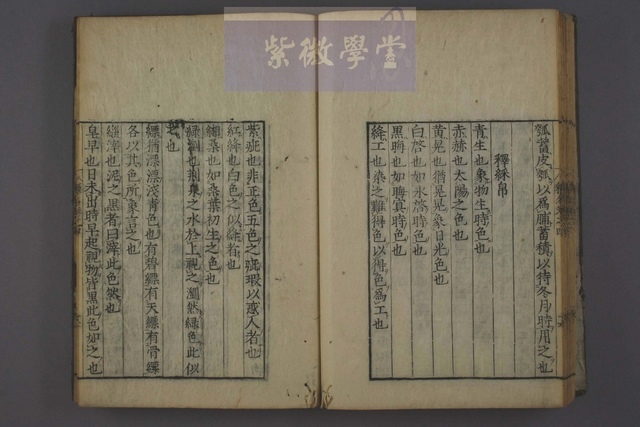 紫微學堂
瓠蓄皮瓠以為脯蓄積以待冬月時用之也
釋綵帛
青生也象物生時色也
赤赫也太陽之色也
黃晃也猶晃晃象日光色也
白啓也如氷啓時色也
黑晦也如晦冥時色也
絳工也染之難得色以得色為工也
紫疵也非正色五色之疵瑕以惑人者也
紅絳也白色之似絳者也
緗桑也如桑葉初生之色也
綠瀏也荆泉之水於上視之瀏然綠色此似
之也
縹猶漂漂淺青色也有碧縹有天縹有骨縹
各以其色所象言之也
緇滓也泥之黑者曰滓此色然也
皁早也日未出時早起視物皆黑此色如之也